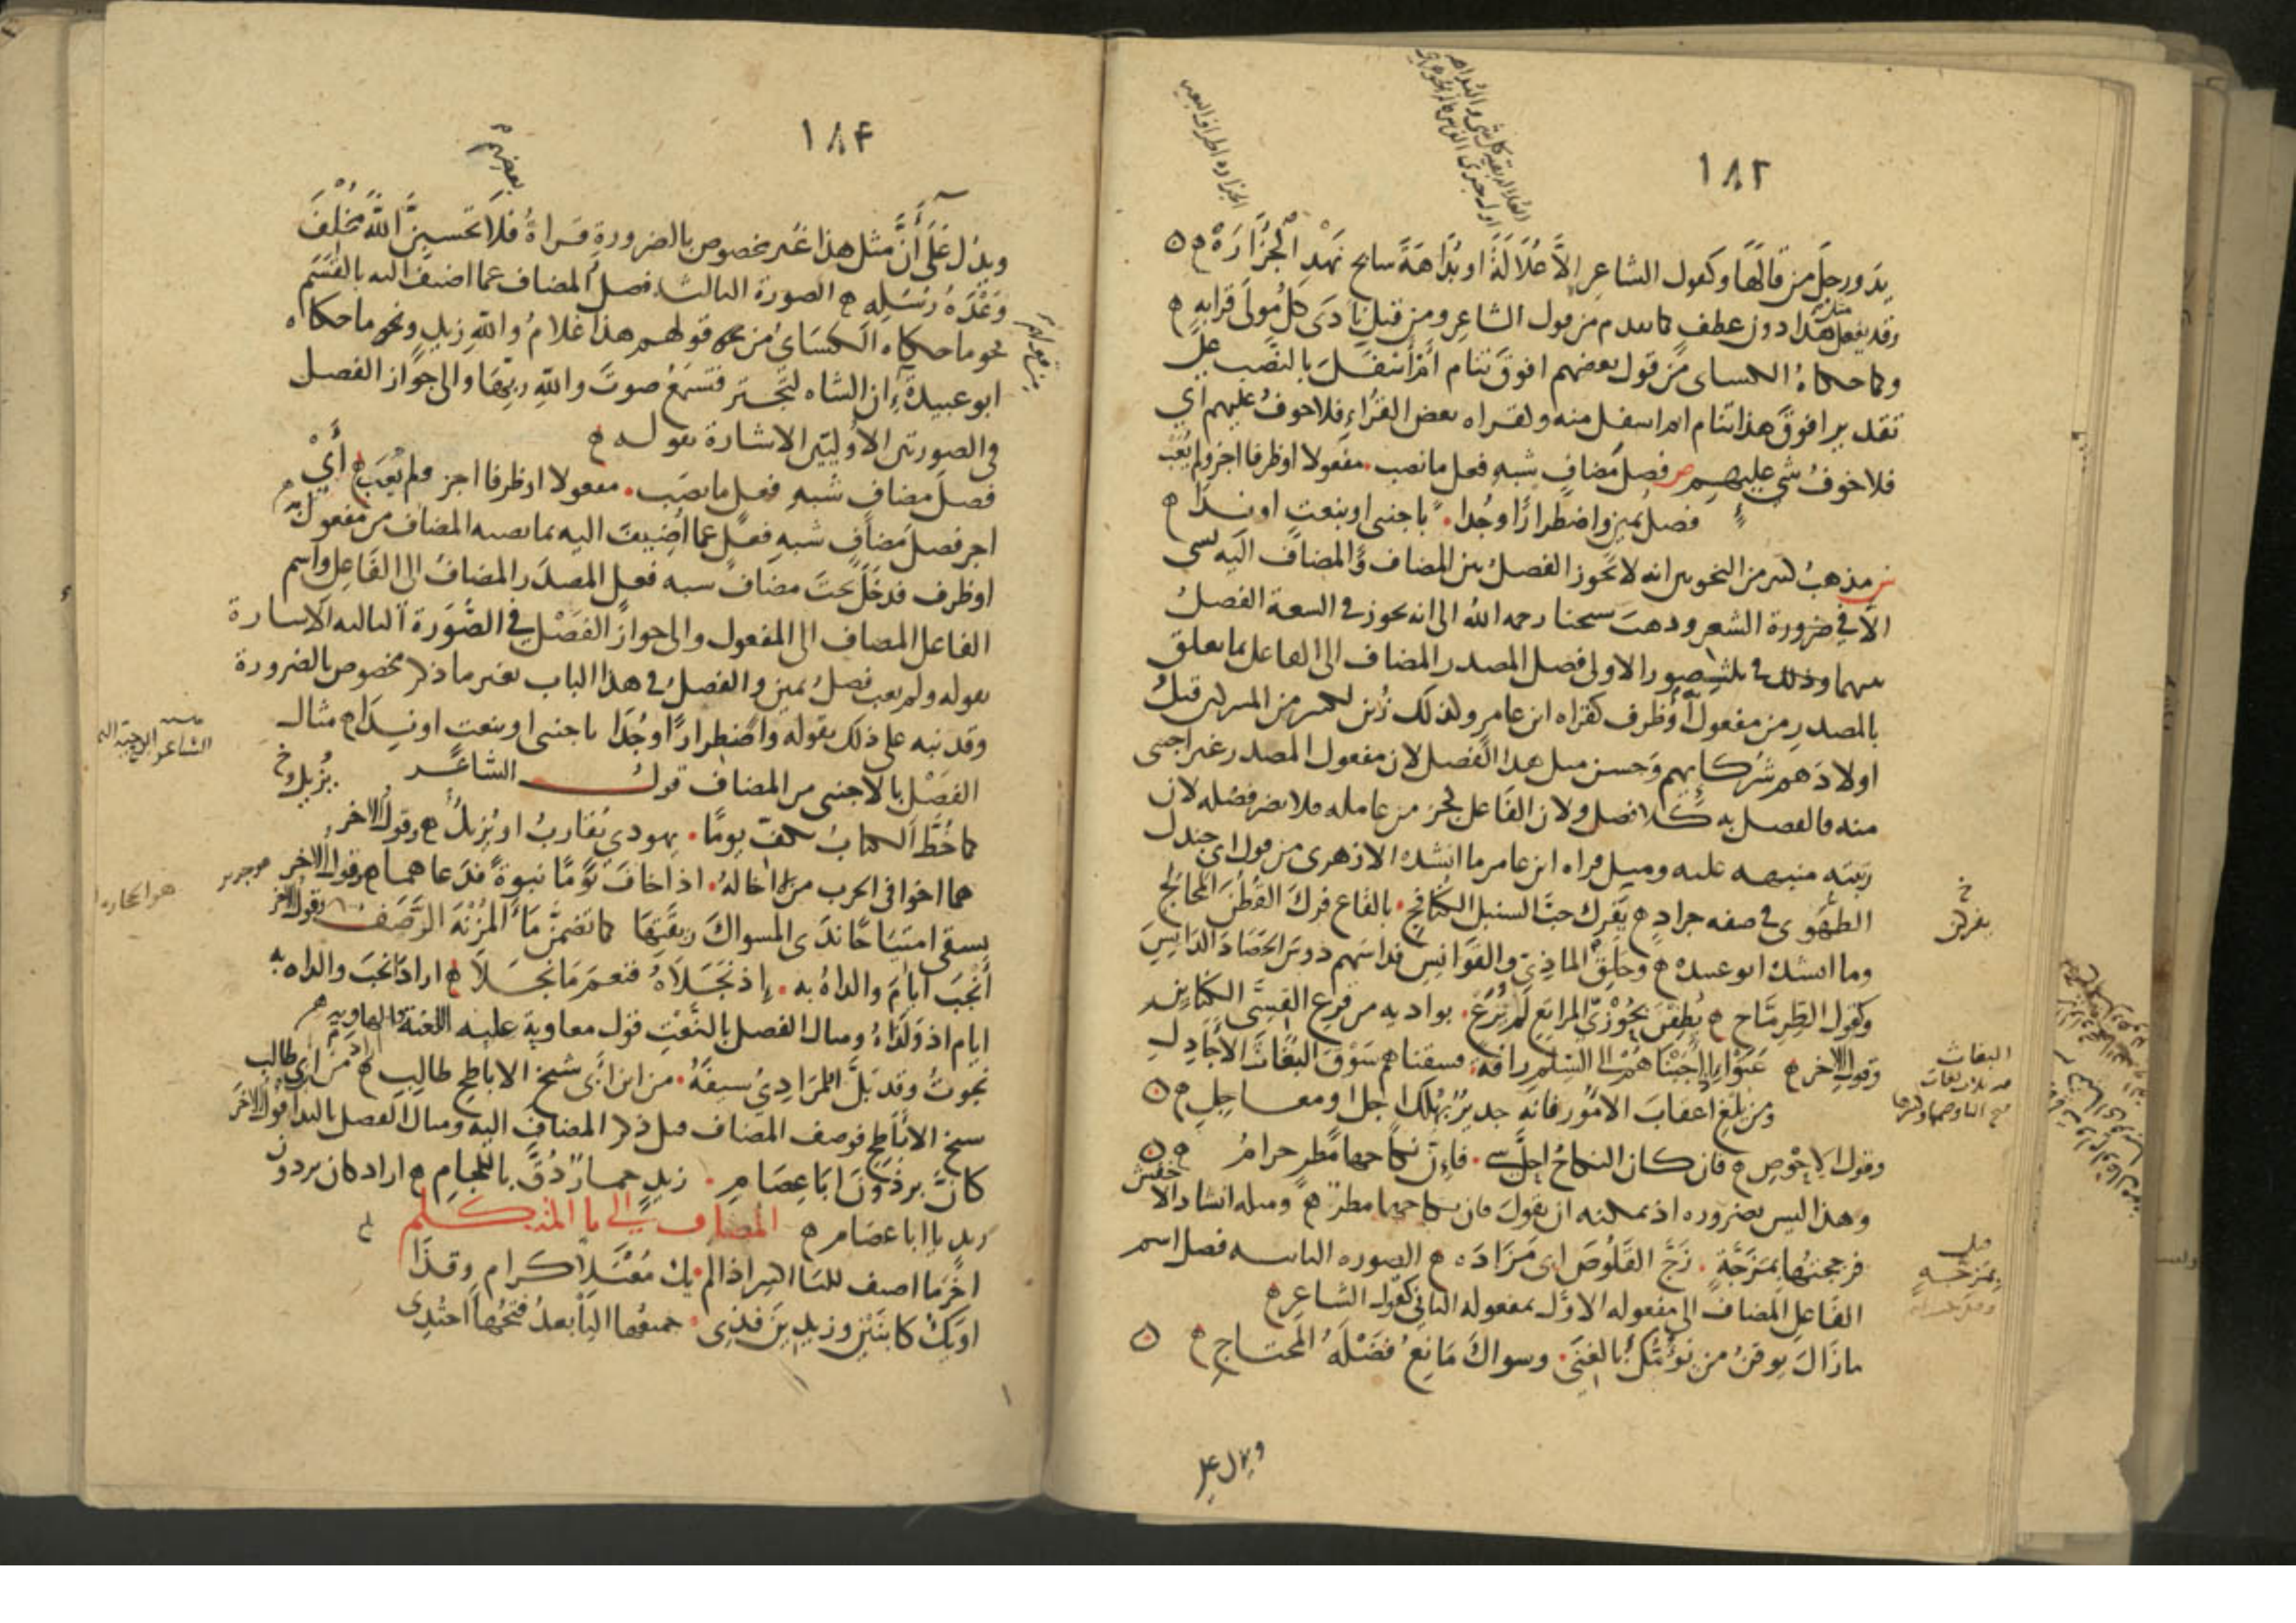 ١٨٢
يد ورجل من قالها وكقول الشاعر إلا علالة او بداهة سابح نهد الجزاره
وقد يفعل هذا دون عطف كما تقدم من قول الشاعر ومن قبل نادى كل مولى قرابه
وكما حكاه الكساى من قول بعضهم افوق تنام أم أسفل بالنصب على
تقدير افوق هذا تنام ام اسفل منه وكقراه بعض القراء فلا خوف عليهم أي
فلا خوف شي عليهم ص فصل مضاف شبه فعل ما نصب مفعولا او ظرفا اجز ولم يعب
فصل يمين واضطرارا وجدا باجنبى او بنعت او ندا
ش مذهب كثير من النحويين انه لا يجوز الفصل بين المضاف والمضاف اليه بشى
الا في ضرورة الشعر وذهب شيخنا رحمه الله الى انه يجوز في السعة الفصل
بينهما وذلك في ثلث صور الاولى فصل المصدر المضاف الى الفاعل بما يتعلق
بالمصدر من مفعول أو ظرف كقراه ابن عامر وكذلك زين لكثير من المشركين قتل
اولادهم شركائهم وحسن مثل هذا الفصل لان مفعول المصدر غير اجنبى
منه فالفصل به كلا فصل ولان الفاعل كجز من عامله فلا يضر فصله لان
رتبته منبهه عليه ومثل قراه ابن عامر ما انشده الازهرى من قول ابى جندل
الطهوى في صفه جراد يفرك حب السنبل الكنافج بالقاع فرك القطن المحالج
وما انشده ابو عبيده وحلق الماذى والقوانس فداسهم دوس الحصاد الدايس
وكقول الطرماح يطفن بحوزى المرابع لم يرع بواديه من قرع القسى الكناين
وقول الاخر عتوا إذ اجبناهم الى السلم رافة فسقناهم سوق البغاث الأجادل
ومن يلغ اعقاب الامور فانه جدير بهلك اجل او معاجل
وقول الاحوص فان كان النكاح احل شي فإن نكاحها مطر حرام
وهذا ليس بضروره اذ يمكنه ان يقول فان نكاحها مطر ومثله انشاد الاخفش
فزججتها بمزجة زج القلوص ابى مزاده الصوره الثانيه فصل اسم
الفاعل المضاف الى مفعوله الاول بمفعوله الثاني كقول الشاعر
مازال يوقن من يؤمك بالغنى وسواك مانع فضله المحتاج
ويدل على
البغاث
بمزجة
١٨٤
ويدل على أن مثل هذا غير مخصوص بالضرورة قراة بعضهم فلا تحسبن الله مخلف
وعده رسله الصورة الثالثه فصل المضاف عما اضيف اليه بالقسم
نحو ما حكاه الكساى من قولهم هذا غلام والله زيد ونحو ما حكاه
ابو عبيدة إن الشاه لتجتر فتسمع صوت والله ربها والى جواز الفصل
في الصورتين الاوليين الاشارة بقوله
فصل مضاف شبه فعل ما نصب مفعولا او ظرفا اجز ولم يعب أي
اجز فصل مضاف شبه فعل عما أضيف اليه بما نصبه المضاف من مفعول به
او ظرف فدخل تحت مضاف شبه فعل المصدر المضاف الى الفاعل واسم
الفاعل المضاف الى المفعول والى جواز الفصل في الصورة الثالثه الاشارة
بقوله ولم يعب فصل يمين والفصل في هذا الباب بغير ما ذكر مخصوص بالضرورة
وقد نبه على ذلك بقوله واضطرارا وجدا باجنبى او بنعت او ندا مثال
الفصل بالاجنبى من المضاف قول الشاعر
كما خط الكتاب بكف يوما يهودي يقارب او يزيل وقول الاخر
هما اخوا في الحرب من لا اخا له اذا خاف يوما نبوة فدعاهما وقول الاخر
يسقى امتياحا ندى المسواك ريقتها كما تضمن ما المزنة الرصف وقول الاخر
أنجب أيام والداه به إذ نجلاه فنعم ما نجلا اراد انجب والداه به
ايام اذ ولداه ومثال الفصل بالنعت قول معاوية
نجوت وقد بل المرادي سيفه من ابن أبى شيخ الاباطح طالب من ابى طالب
شيخ الاباطح فوصف المضاف قبل ذكر المضاف اليه ومثال الفصل بالندا قول الاخر
كأن برذون ابا عصام زيد حمار دق باللجام اراد كان برذون
زيد يا ابا عصام المضاف إلى يا المتكلم
اخر ما اضيف لليا اكسر اذا لم يك معتلا كرام وقذا
او يك كابنين وزيدين فذى جميعها اليا بعد فتحها احتذى